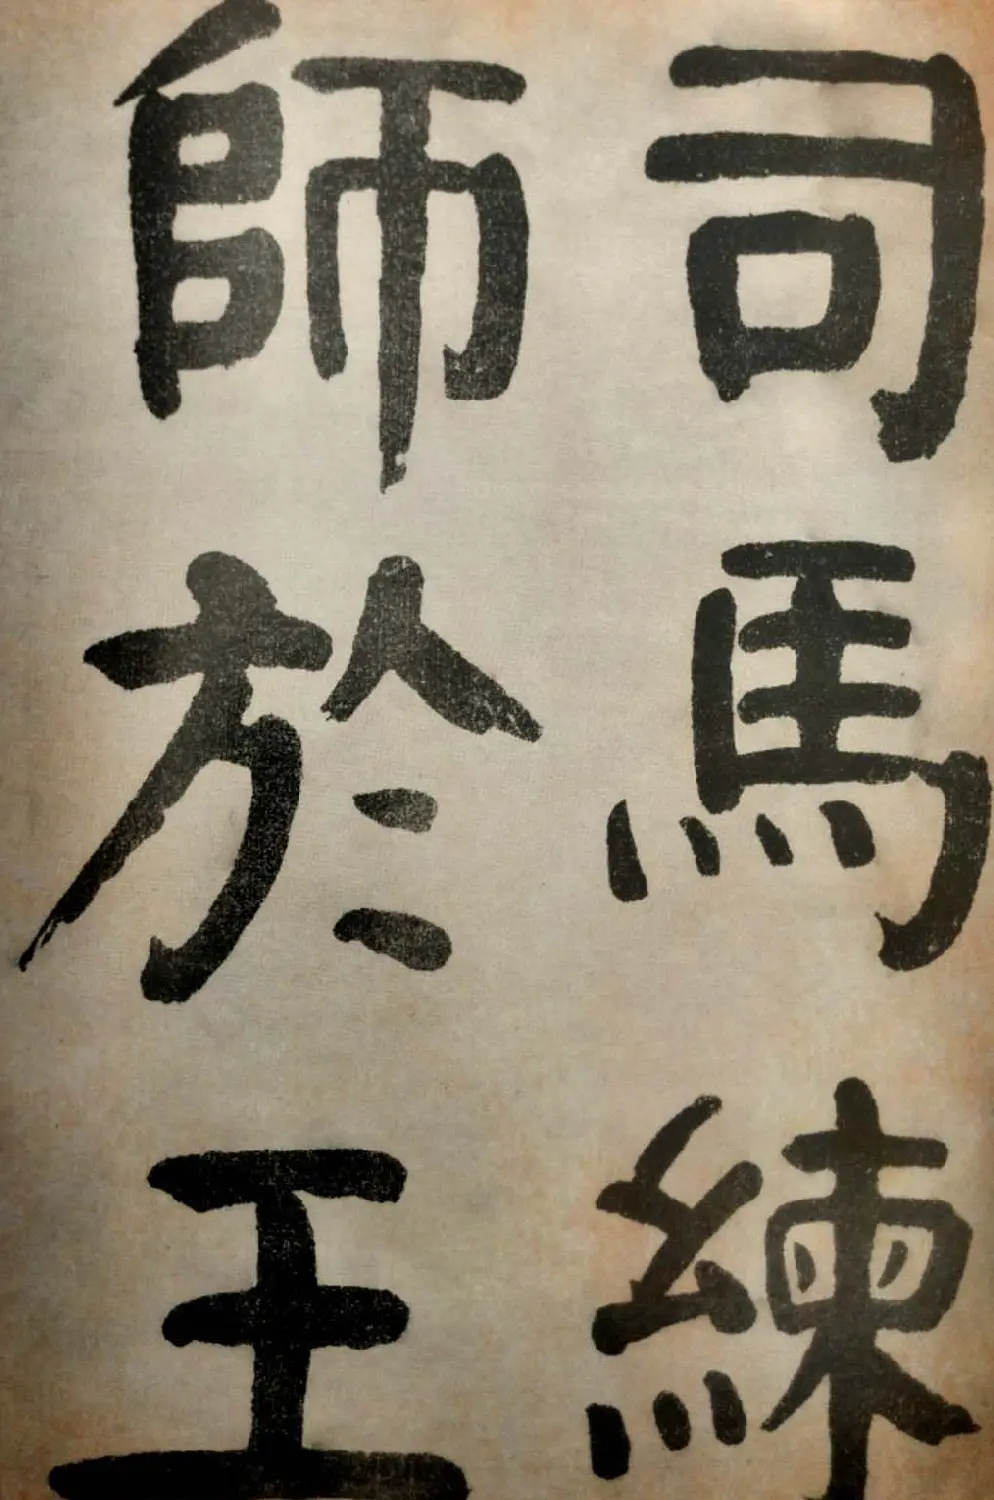 司馬練
師於王